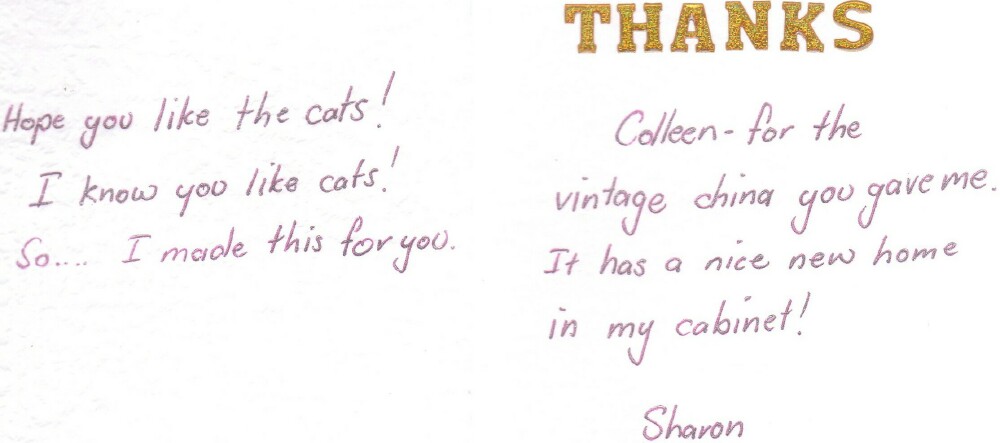 Hope you like the cats!
I know you like cats!
So.... I made this for you.
THANKS
Colleen - for the
vintage china you gave me.
It has a nice new home
in my cabinet!
Sharon